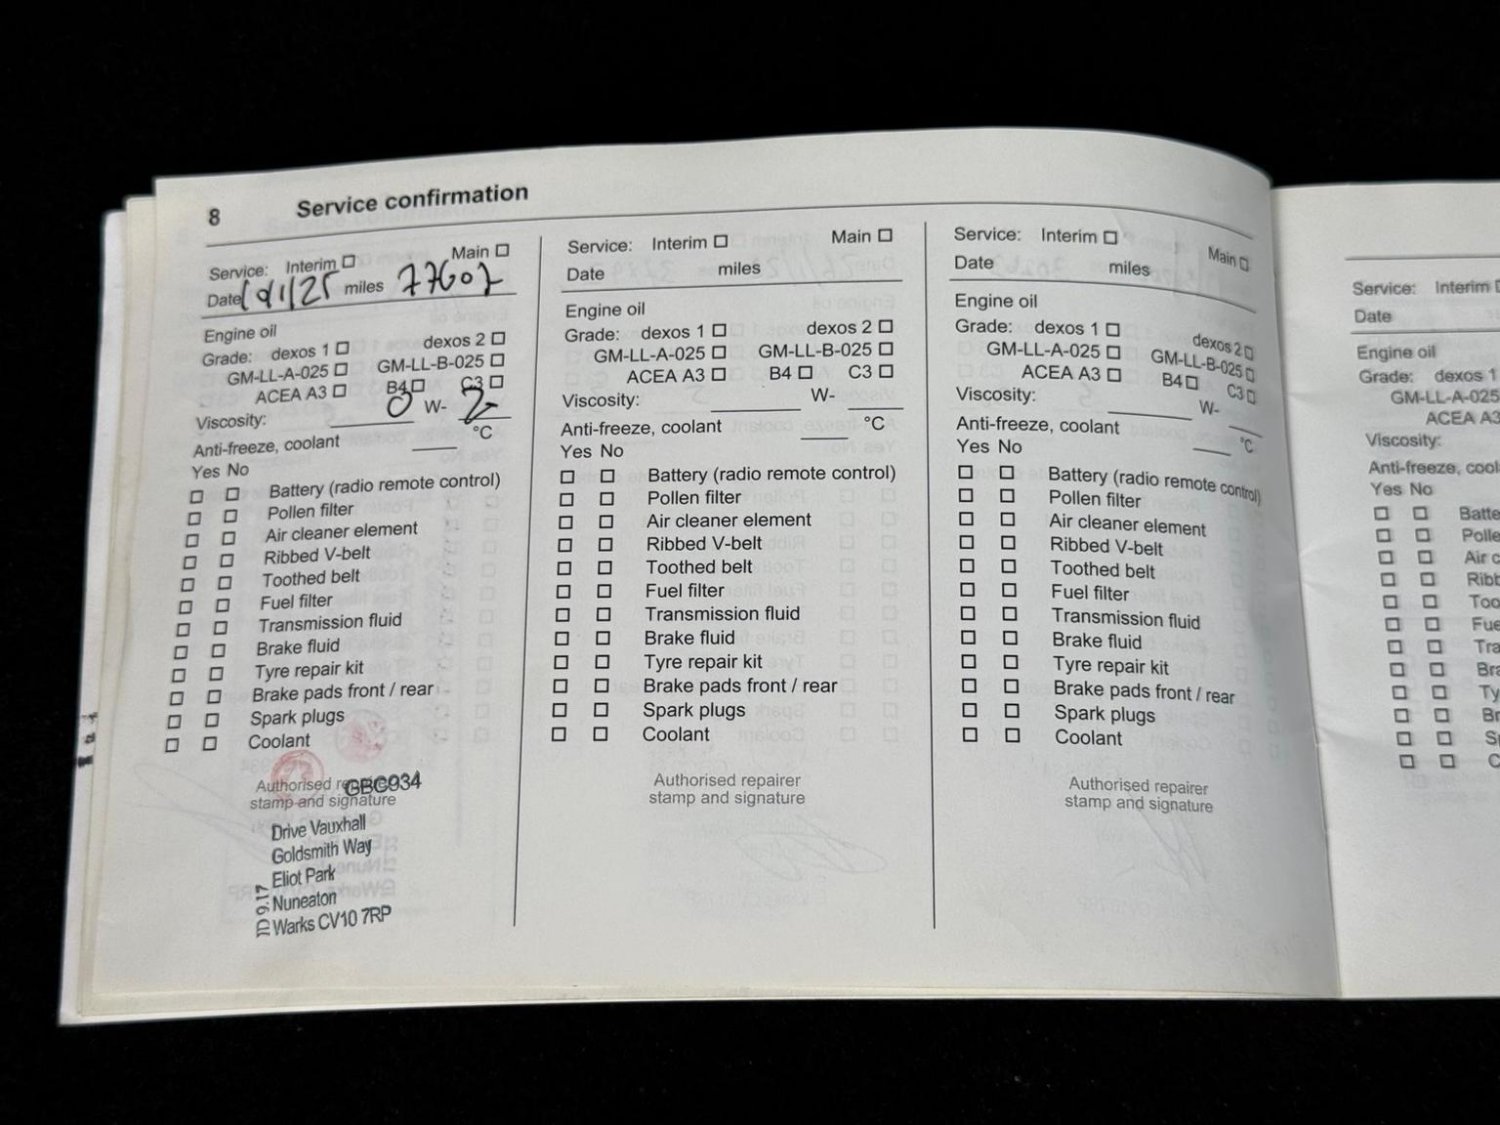 8 Service confirmation
Service: Interim Main
Date miles 77607
Engine oil
Grade: dexos 1 dexos 2
GM-LL-A-025 GM-LL-B-025
ACEA A3 B4 C3
Viscosity: 0 W- 2
Anti-freeze, coolant °C
Yes No
Battery (radio remote control)
Pollen filter
Air cleaner element
Ribbed V-belt
Toothed belt
Fuel filter
Transmission fluid
Brake fluid
Tyre repair kit
Brake pads front / rear
Spark plugs
Coolant
Authorised repairer GBC934
stamp and signature
Drive Vauxhall
Goldsmith Way
Eliot Park
Nuneaton
Warks CV10 7RP
Service: Interim Main
Date miles
Engine oil
Grade: dexos 1 dexos 2
GM-LL-A-025 GM-LL-B-025
ACEA A3 B4 C3
Viscosity: W-
Anti-freeze, coolant °C
Yes No
Battery (radio remote control)
Pollen filter
Air cleaner element
Ribbed V-belt
Toothed belt
Fuel filter
Transmission fluid
Brake fluid
Tyre repair kit
Brake pads front / rear
Spark plugs
Coolant
Authorised repairer
stamp and signature
Service: Interim Main
Date miles
Engine oil
Grade: dexos 1 dexos 2
GM-LL-A-025 GM-LL-B-025
ACEA A3 B4 C3
Viscosity: W-
Anti-freeze, coolant °C
Yes No
Battery (radio remote control)
Pollen filter
Air cleaner element
Ribbed V-belt
Toothed belt
Fuel filter
Transmission fluid
Brake fluid
Tyre repair kit
Brake pads front / rear
Spark plugs
Coolant
Authorised repairer
stamp and signature
Service: Interim
Date
Engine oil
Grade: dexos 1
GM-LL-A-025
ACEA A3
Viscosity:
Anti-freeze, cool
Yes No
Batte
Polle
Air c
Ribb
Too
Fue
Tra
Bra
Ty
Br
Sp
C